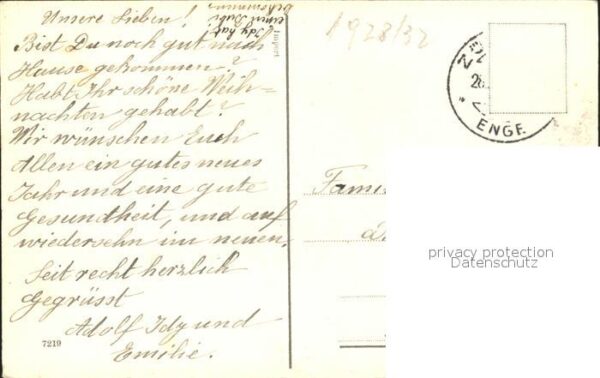 Unsere Lieben!
Bist Du noch gut nach
Hause gekommen?
Habt Ihr schöne Weih-
nachten gehabt?
Wir wünschen Euch
Allen ein gutes neues
Jahr und eine gute
Gesundheit, und auf
wiedersehn im neuen.
Seit recht herzlich
Gegrüsst
Adolf Idy und
Emilie.
7219
Idy hat
einen Bubi
bekommen
Import
1928/32
ENGE
Famil
privacy protection
Datenschutz